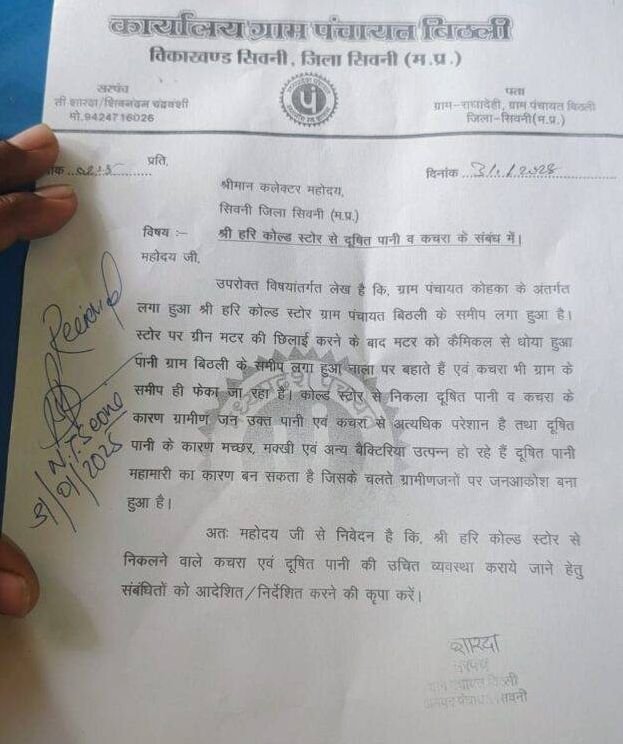 कार्यालय ग्राम पंचायत बिठली
विकाखण्ड सिवनी, जिला सिवनी (म.प्र.)
सरपंच
मो.9424716026
पता
ग्राम-राघादेही, ग्राम पंचायत बिठली
जिला-सिवनी(म.प्र.)
प्रति,
दिनांक
श्रीमान कलेक्टर महोदय,
सिवनी जिला सिवनी (म.प्र.)
विषय :- श्री हरि कोल्ड स्टोर से दूषित पानी व कचरा के संबंध में।
महोदय जी,
उपरोक्त विषयांतर्गत लेख है कि, ग्राम पंचायत कोहका के अंतर्गत
लगा हुआ श्री हरि कोल्ड स्टोर ग्राम पंचायत बिठली के समीप लगा हुआ है।
स्टोर पर ग्रीन मटर की छिलाई करने के बाद मटर को कैमिकल से धोया हुआ
पानी ग्राम बिठली के समीप लगा हुआ नाला पर बहाते हैं एवं कचरा भी ग्राम के
समीप ही फेका जा रहा है। कोल्ड स्टोर से निकला दूषित पानी व कचरा के
कारण ग्रामीण जन उक्त पानी एवं कचरा से अत्यधिक परेशान है तथा दूषित
पानी के कारण मच्छर, मक्खी एवं अन्य बैक्टिरिया उत्पन्न हो रहे हैं दूषित पानी
महामारी का कारण बन सकता है जिसके चलते ग्रामीणजनों पर जनआकोश बना
हुआ है।
अतः महोदय जी से निवेदन है कि, श्री हरि कोल्ड स्टोर से
निकलने वाले कचरा एवं दूषित पानी की उचित व्यवस्था कराये जाने हेतु
संबंधितों को आदेशित/निर्देशित करने की कृपा करें।
Received
N.T. Seoni
31/01/2025
शारदा
सरपंच
ग्राम पंचायत बिठली